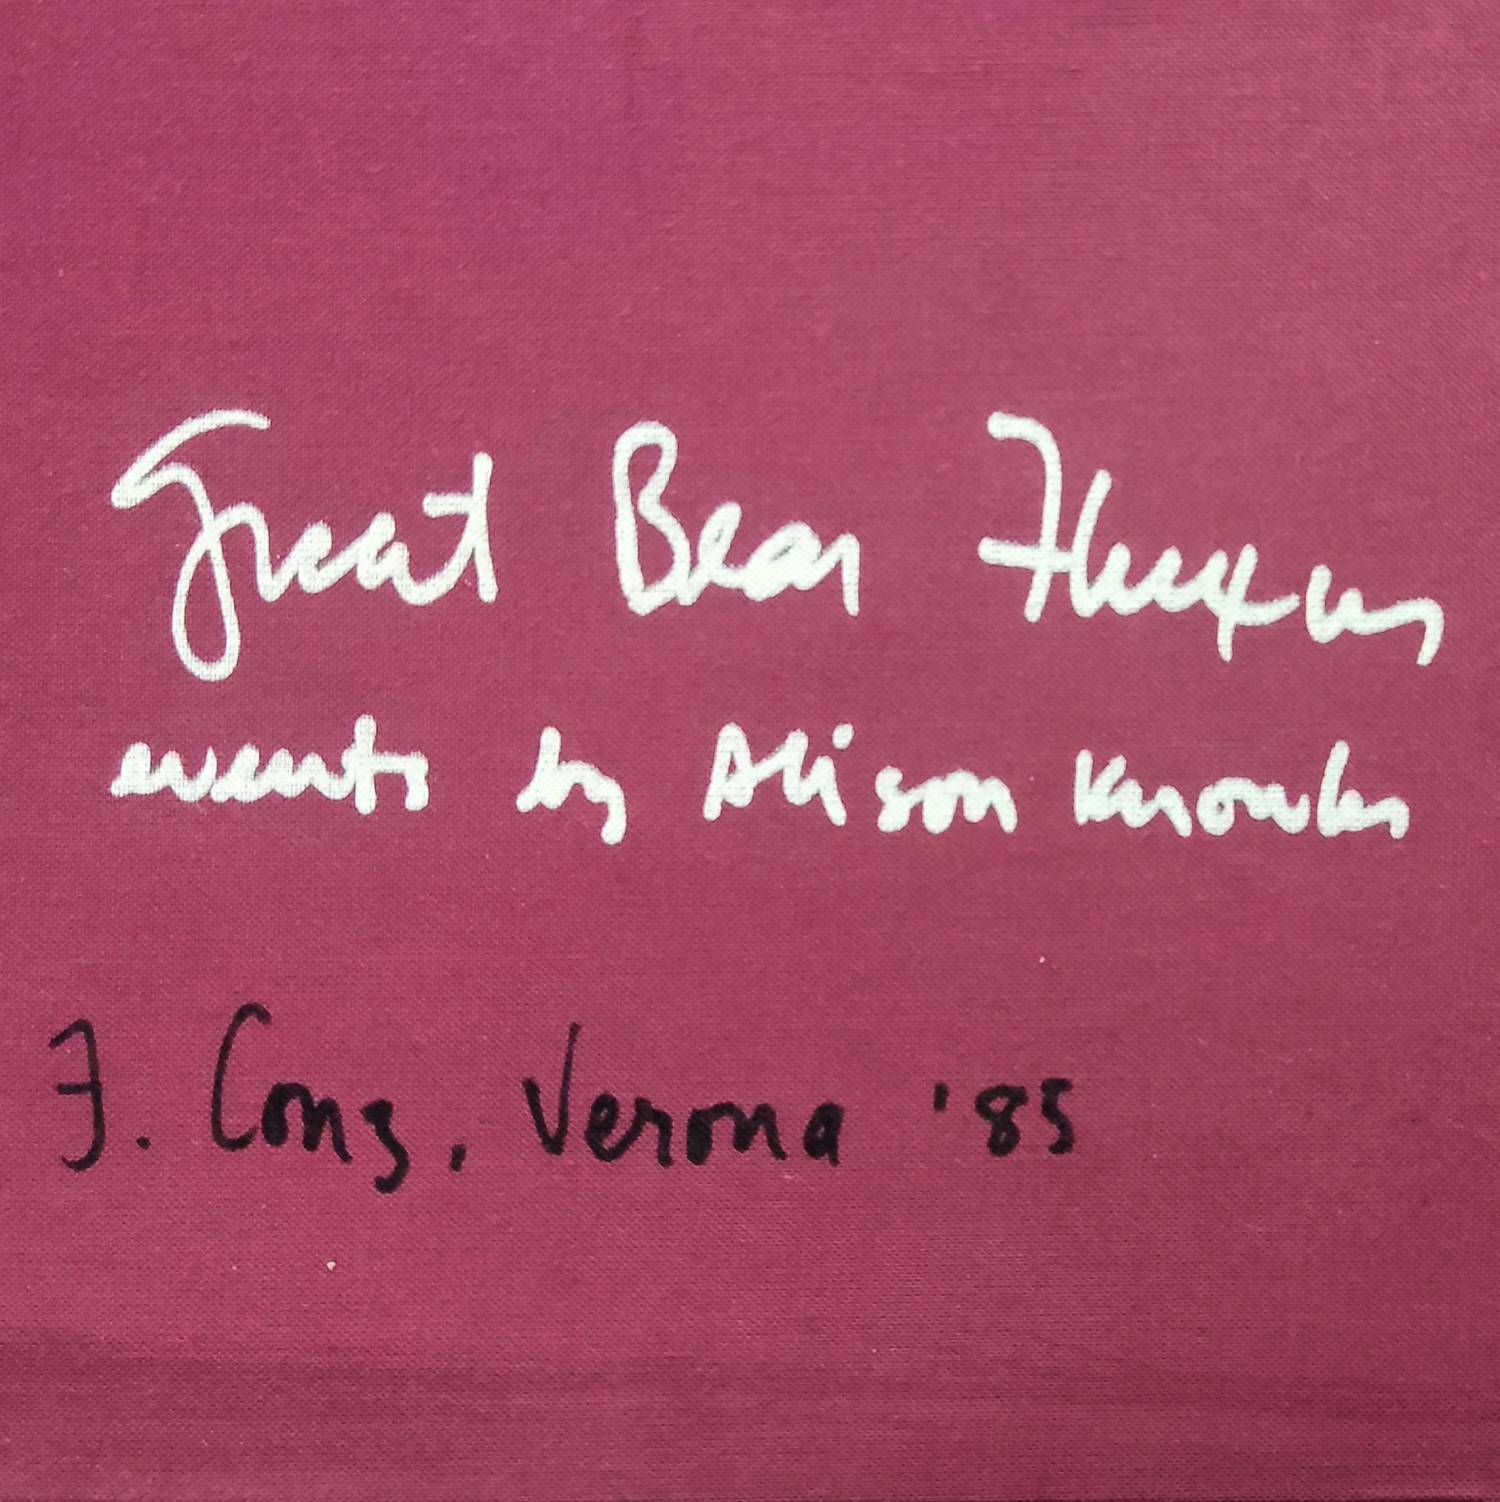 Great Bear Fluxus
events by Alison Knowles
F. Conz, Verona '85